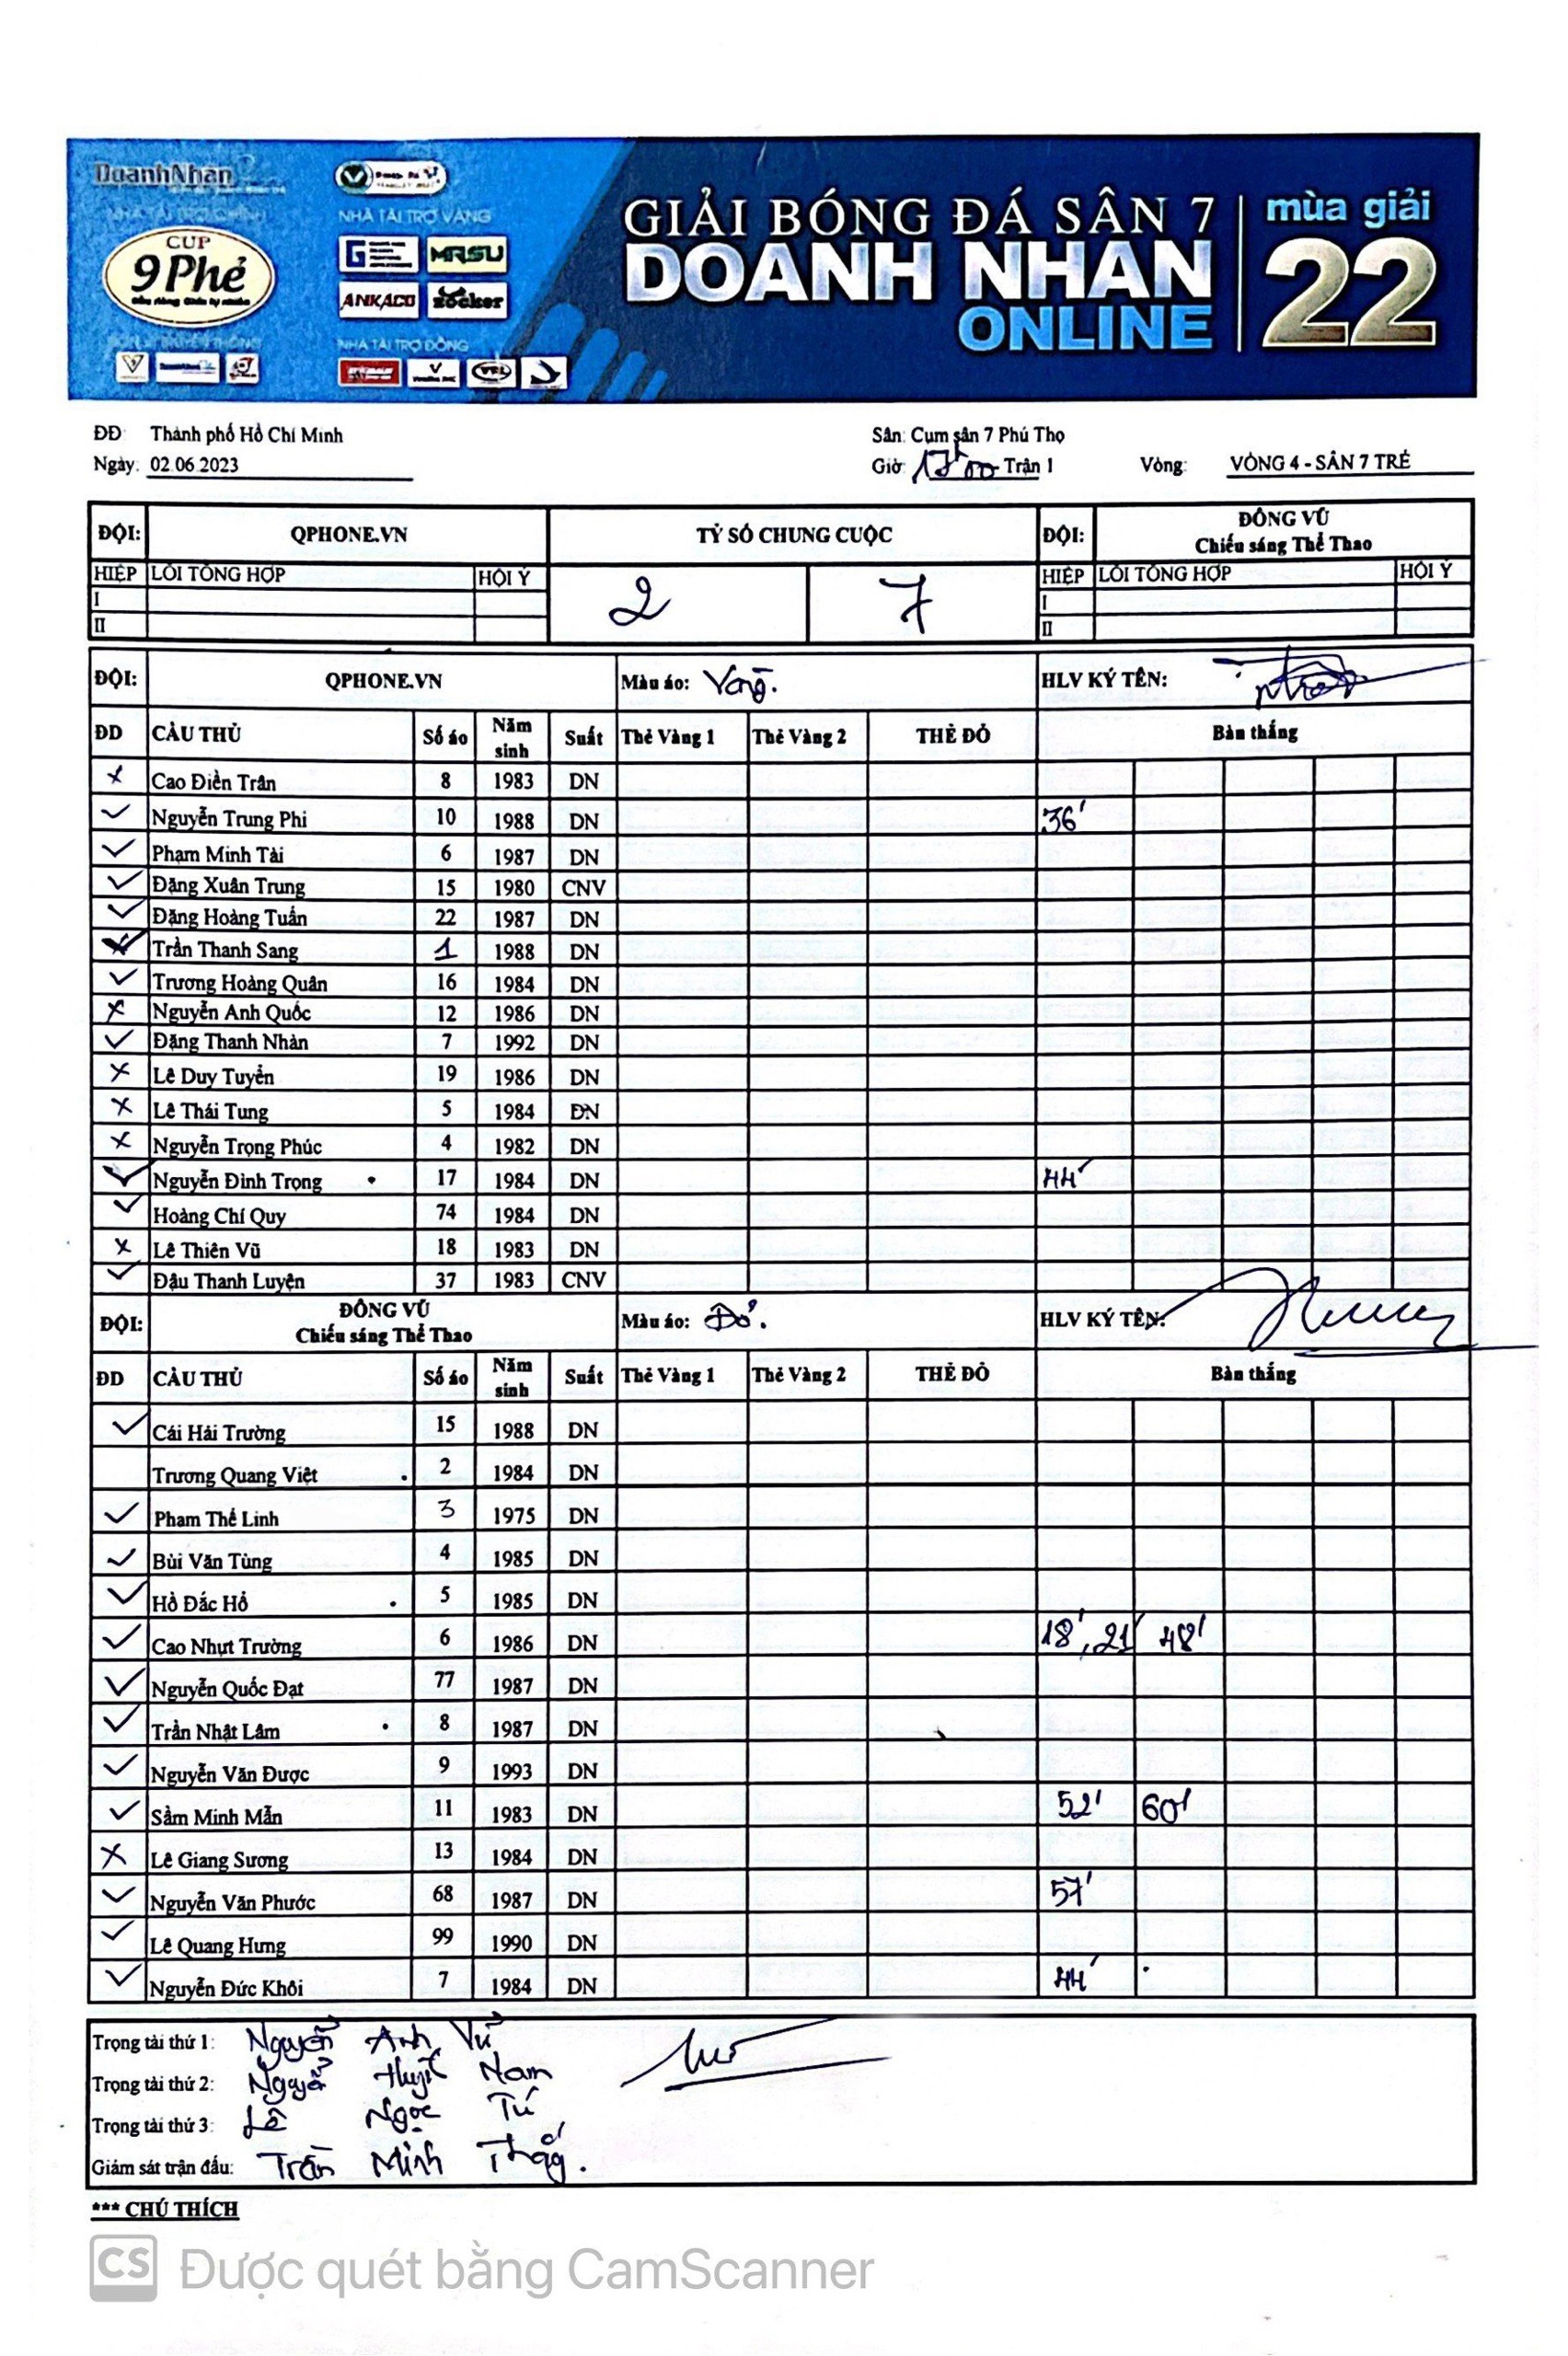 DoanhNhân
NHÀ TÀI TRỢ CHÍNH
NHÀ TÀI TRỢ VÀNG
CUP
9 Phẻ
MRSU
ANKACO
zocker
NHÀ TÀI TRỢ ĐỒNG
GIẢI BÓNG ĐÁ SÂN 7
DOANH NHÂN
ONLINE
mùa giải
22
ĐĐ: Thành phố Hồ Chí Minh
Sân: Cụm sân 7 Phú Thọ
Ngày: 02.06.2023
Giờ: 17h00 Trận 1
Vòng: VÒNG 4 - SÂN 7 TRẺ
ĐỘI: QPHONE.VN TỶ SỐ CHUNG CUỘC ĐỘI: ĐÔNG VŨ
Chiếu sáng Thể Thao
HIỆP LỖI TỔNG HỢP HỘI Ý 2 7 HIỆP LỖI TỔNG HỢP HỘI Ý
I I
II II
ĐỘI: QPHONE.VN Màu áo: Vàng. HLV KÝ TÊN:
ĐD CẦU THỦ Số áo Năm sinh Suất Thẻ Vàng 1 Thẻ Vàng 2 THẺ ĐỎ Bàn thắng
Cao Điền Trân 8 1983 DN
Nguyễn Trung Phi 10 1988 DN 36'
Phạm Minh Tài 6 1987 DN
Đặng Xuân Trung 15 1980 CNV
Đặng Hoàng Tuấn 22 1987 DN
Trần Thanh Sang 1 1988 DN
Trương Hoàng Quân 16 1984 DN
Nguyễn Anh Quốc 12 1986 DN
Đặng Thanh Nhàn 7 1992 DN
Lê Duy Tuyển 19 1986 DN
Lê Thái Tung 5 1984 DN
Nguyễn Trọng Phúc 4 1982 DN
Nguyễn Đình Trọng 17 1984 DN 44'
Hoàng Chí Quy 74 1984 DN
Lê Thiên Vũ 18 1983 DN
Đậu Thanh Luyện 37 1983 CNV
ĐỘI: ĐÔNG VŨ
Chiếu sáng Thể Thao Màu áo: Đỏ. HLV KÝ TÊN:
ĐD CẦU THỦ Số áo Năm sinh Suất Thẻ Vàng 1 Thẻ Vàng 2 THẺ ĐỎ Bàn thắng
Cái Hải Trường 15 1988 DN
Trương Quang Việt 2 1984 DN
Phạm Thế Linh 3 1975 DN
Bùi Văn Tùng 4 1985 DN
Hồ Đắc Hổ 5 1985 DN
Cao Nhựt Trường 6 1986 DN 18', 21' 48'
Nguyễn Quốc Đạt 77 1987 DN
Trần Nhật Lâm 8 1987 DN
Nguyễn Văn Được 9 1993 DN
Sầm Minh Mẫn 11 1983 DN 52' 60'
Lê Giang Sương 13 1984 DN
Nguyễn Văn Phước 68 1987 DN 57'
Lê Quang Hưng 99 1990 DN
Nguyễn Đức Khôi 7 1984 DN 44'
Trọng tài thứ 1: Nguyễn Anh Vũ
Trọng tài thứ 2: Nguyễn Huỳnh Nam
Trọng tài thứ 3: Lê Ngọc Tú
Giám sát trận đấu: Trần Minh Thắng.
*** CHÚ THÍCH
CS Được quét bằng CamScanner